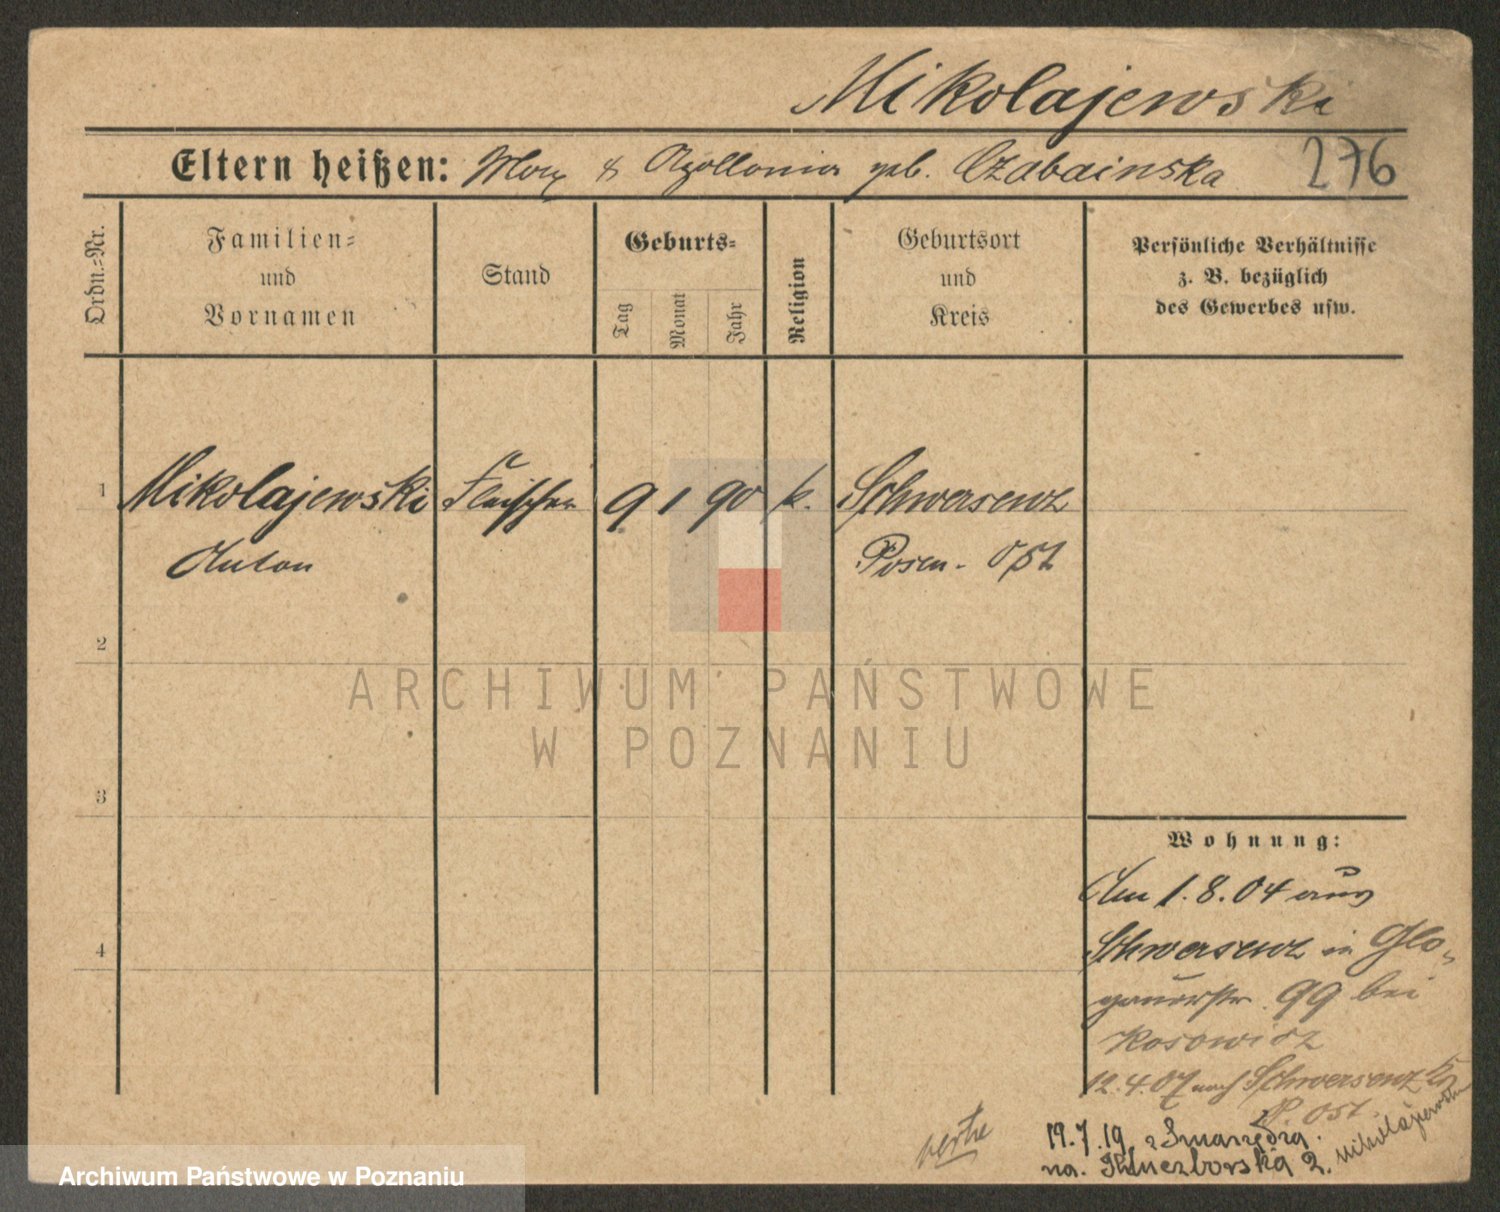 Mikolajewski
Eltern heißen: geb. Czabainska 276
Ordn.=Nr.
Familien=
und
Vornamen
Stand
Geburts=
Tag
Monat
Jahr
Religion
Geburtsort
und
Kreis
Persönliche Verhältnisse
z. B. bezüglich
des Gewerbes usw.
1 Mikolajewski Fleischer 9 1 90 k. Schwersenz
Anton Posen-Ost
2
3
4
ARCHIWUM PAŃSTWOWE
W POZNANIU
Wohnung:
Am 1.8.04 aus
Schwersenz in Glo-
gauerstr. 99 bei
Kosowicz
12.4.07 nach Schwersenz
P. Ost.
19.7.19 z
na. Kluczborska 2.
Mikolajewski
Archiwum Państwowe w Poznaniu